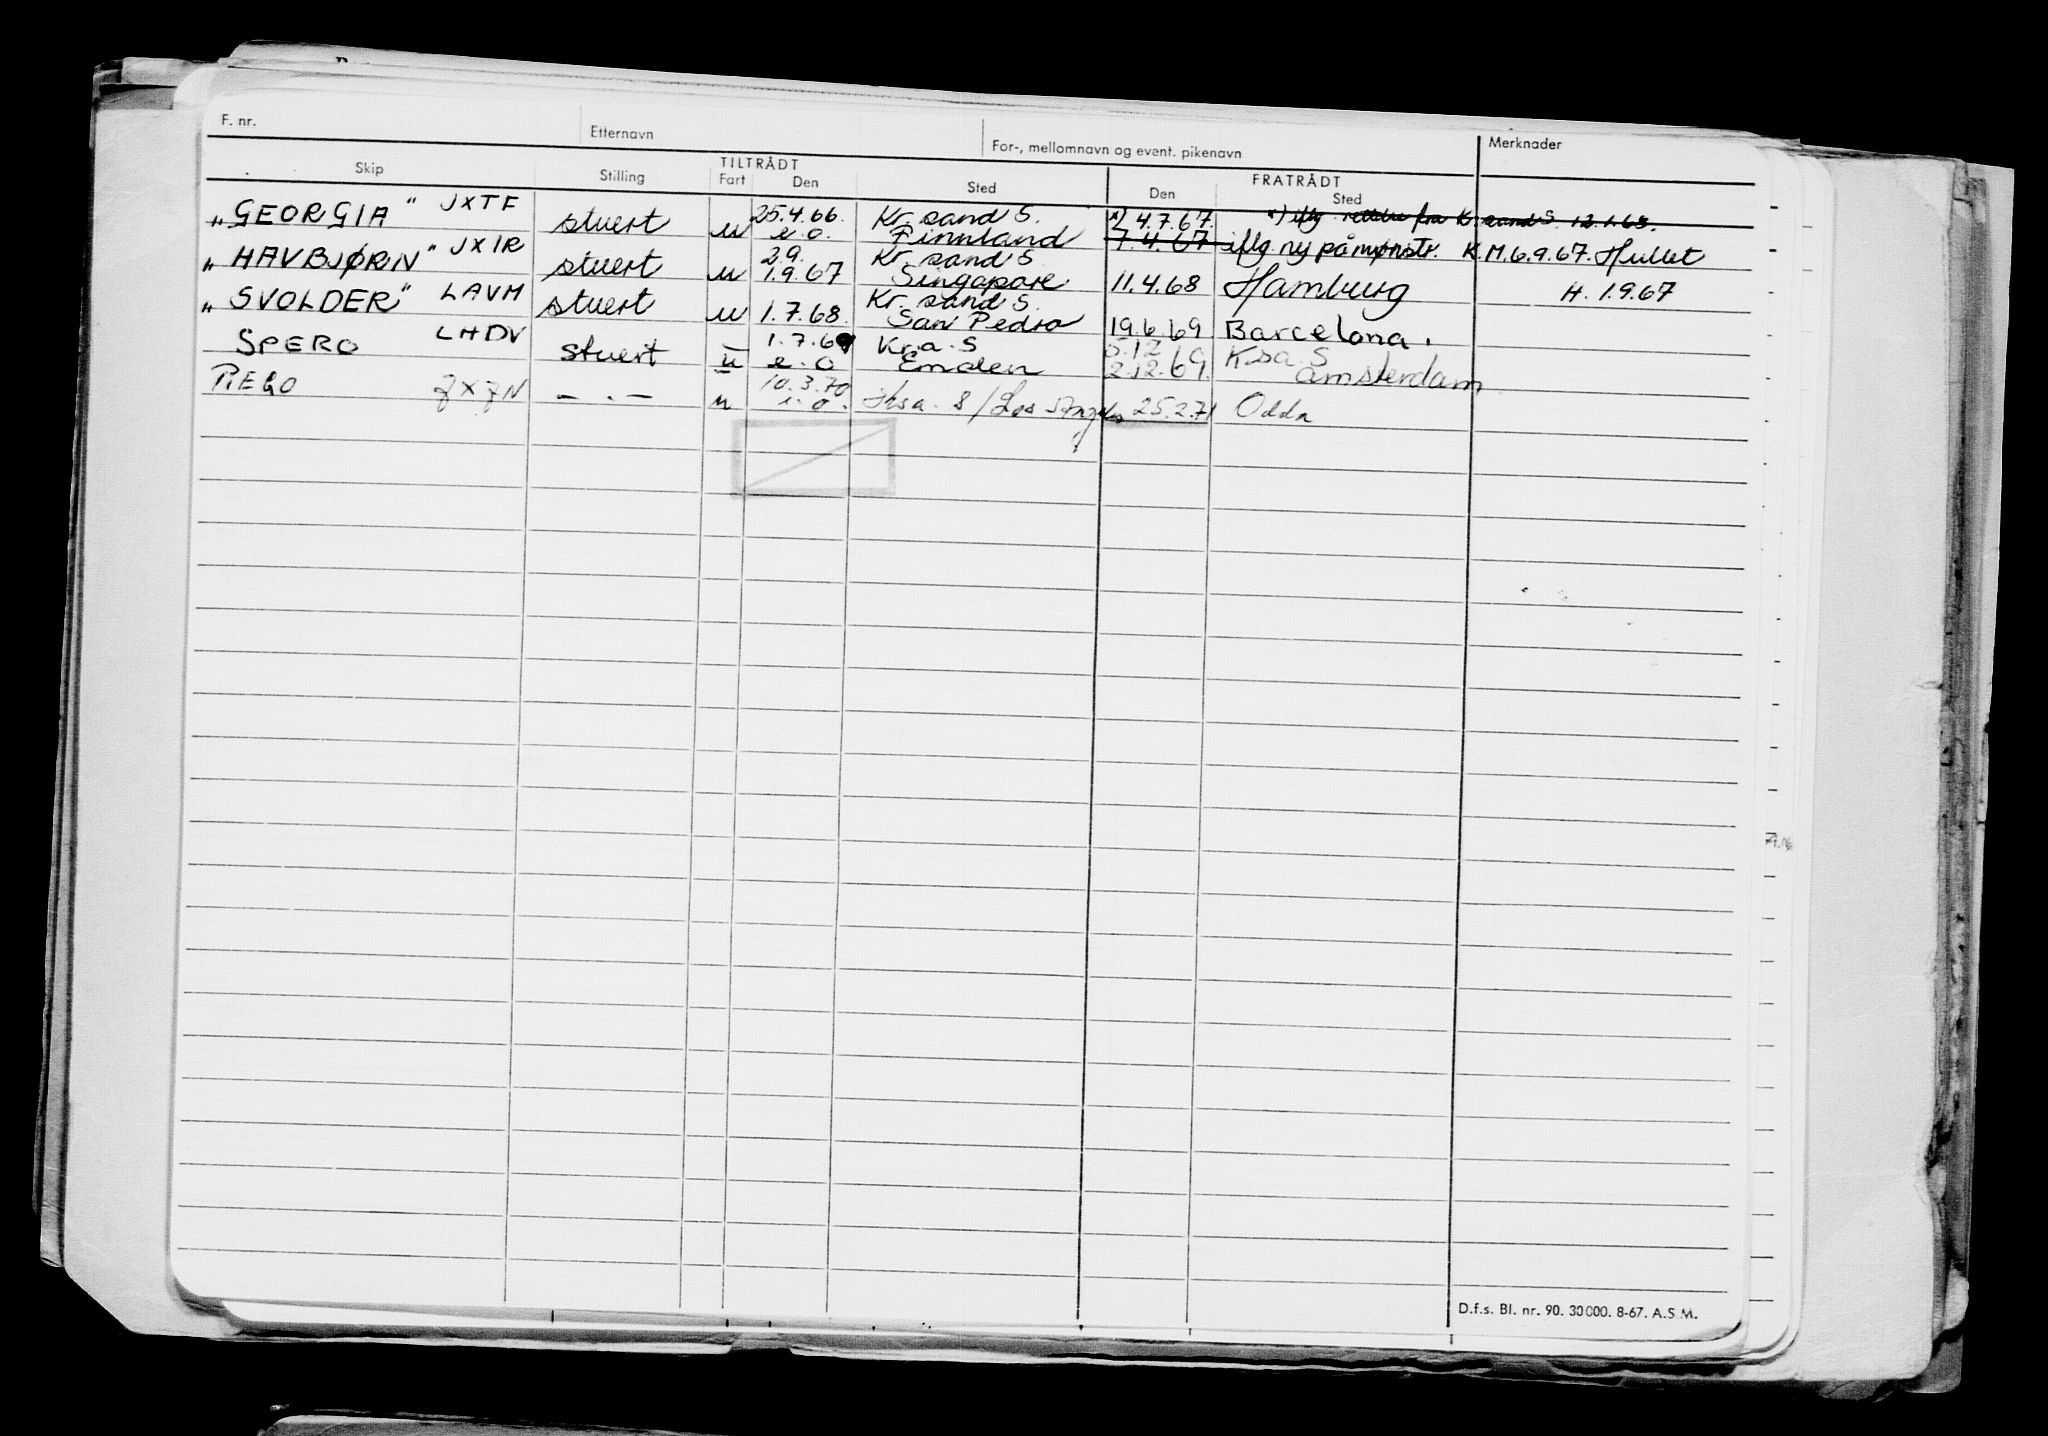 F. nr. Etternavn For-, mellomnavn og event. pikenavn Merknader
TILTRÅDT FRATRÅDT
Skip Stilling Fart Den Sted Den Sted
„GEORGIA" JXTF stuert u 25.4.66. e.o. Kr.sand S. Finnland x) 4.7.67. 7.4.67 x) iflg. rettelse fra Kr.sand S. 12.1.68.
iflg. ny påmønstr. K.M. 6.9.67. Hullet
„HAVBJØRN" JXIR stuert u 29. 1.9.67 Kr.sand S Singapore 11.4.68 Hamburg H. 1.9.67
„SVOLDER" LAVM stuert u 1.7.68. Kr.sand S. San Pedro 19.6.69 Barcelona.
SPERO LHDV stuert u 1.7.69 e.o Kr.a.S Emden 5.12 2.12.69. Ksa. S Amsterdam
REGO JXJN — . — u 10.3.70 e.o. Ksa. S / Los Angeles 25.2.71 Odda
D.f.s. Bl. nr. 90. 30000. 8-67. A.S.M.